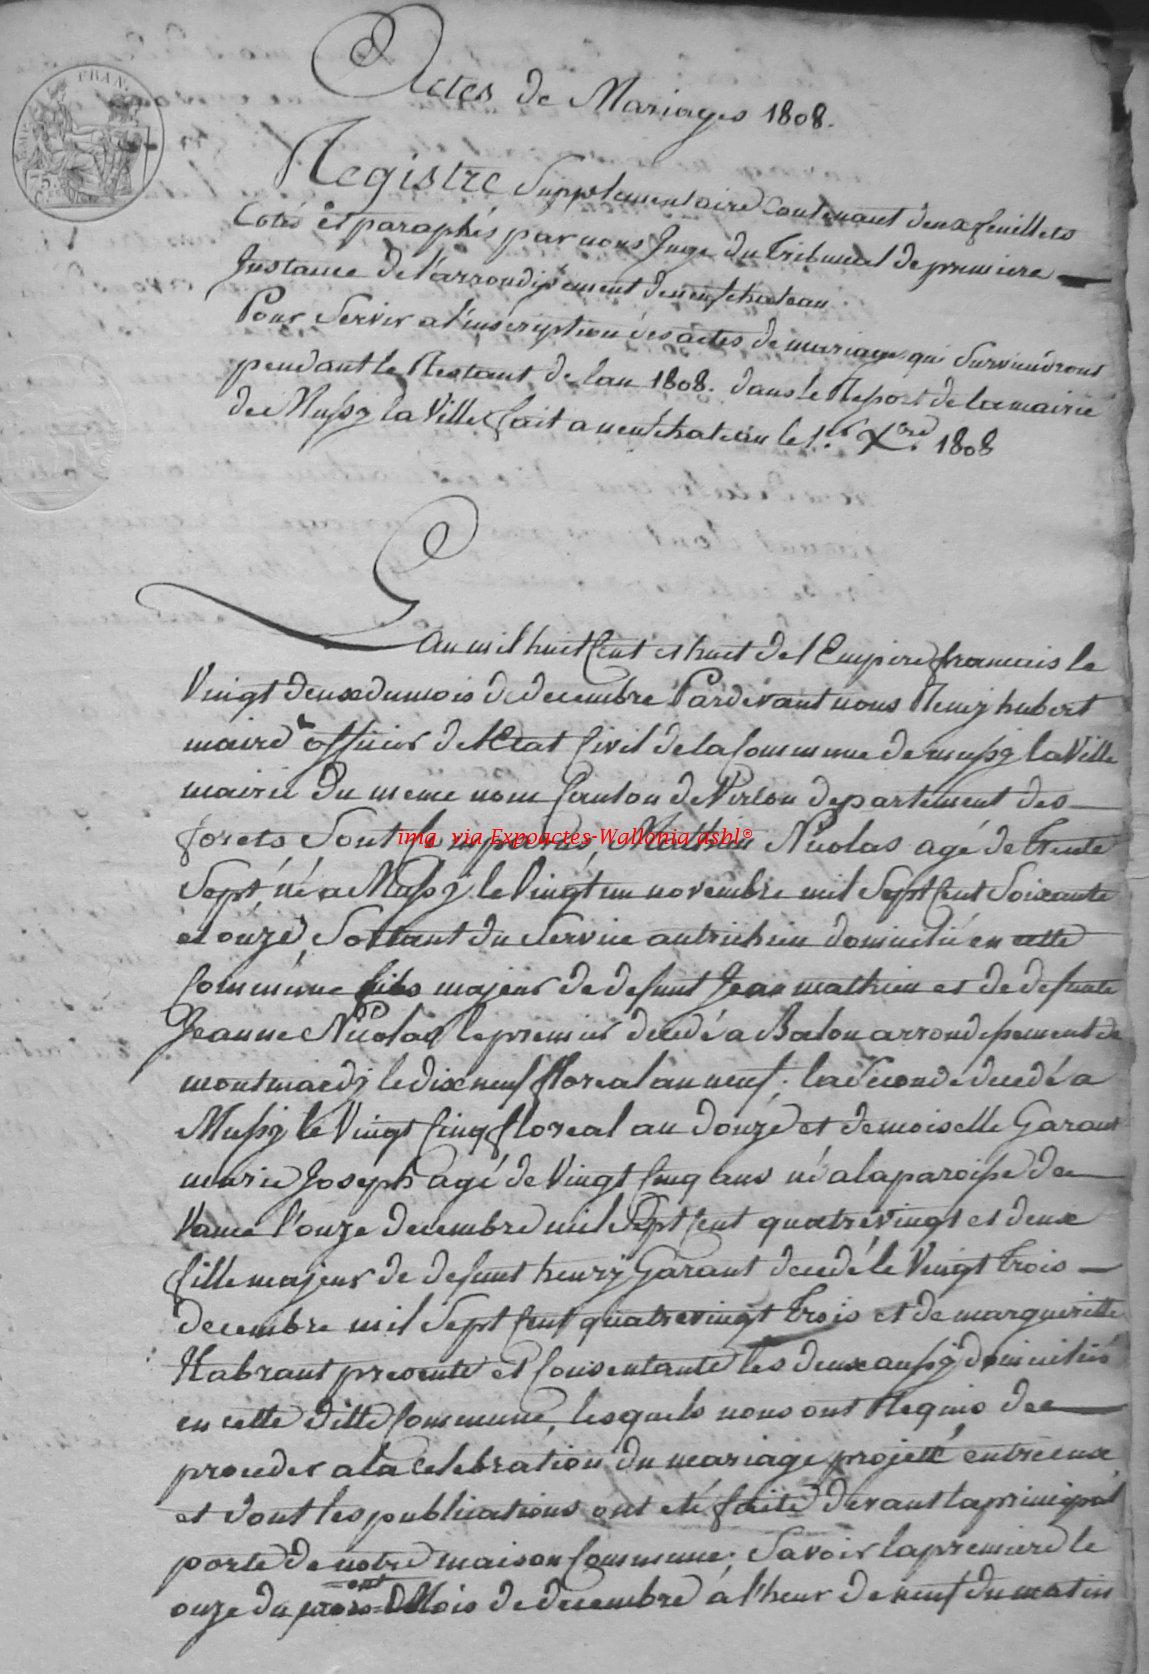 FRAN.
EMP.
75
C.
Actes de Mariages 1808.
Registre Supplementaire Contenant deux feuillets
Cotés et paraphés par nous Juge du Tribunal de premiere
Instance de l'arrondissement de neufchateau
Pour Servir a l'inscription des actes de mariage qui Surviendront
pendant le Restant de l'an 1808. dans le Ressort de la mairie
de Mussy la Ville fait a neufchateau le 1.er Xbre 1808
L'an mil huit Cent et huit de l'Empire francais le
Vingt deux du mois de decembre Pardevant nous Remy hubert
maire officier de l'Etat Civil de la Commune de mussy la Ville
mairie du meme nom Canton de Virton departement des
forets Sont Comparus Mathieu Nicolas agé de trente
Sept, né a Mussy le Vingt un novembre mil Sept Cent Soixante
et onze, Sortant du Service autrichien domicilié en cette
Commune fils majeur de defunt Jean mathieu et de defunte
Jeanne Nicolas le premier decedé a Balon arrondissement de
montmaedy le dix neuf floreal an neuf; la Seconde decedé a
Mussy le Vingt Cinq floreal an douze et demoiselle Garant
marie Joseph agé de Vingt Cinq ans né a la paroisse de
Vance l'onze decembre mil Sept Cent quatre vingt et deux
fille majeur de defunt henry Garant decedé le Vingt trois
decembre mil Sept Cent quatre vingt trois et de margueritte
Habrant presente et Consentante les deux aussy domiciliés
en cette ditte Commune, lesquels nous ont Requis de
proceder a la Celebration du mariage projetté entre eux
et dont les publications ont eté faite devant la principal
porte de notre maison Commune; Savoir la premiere le
onze du Mois de decembre á l'heur de neuf du matin
img via Expoactes-Wallonia asbl©